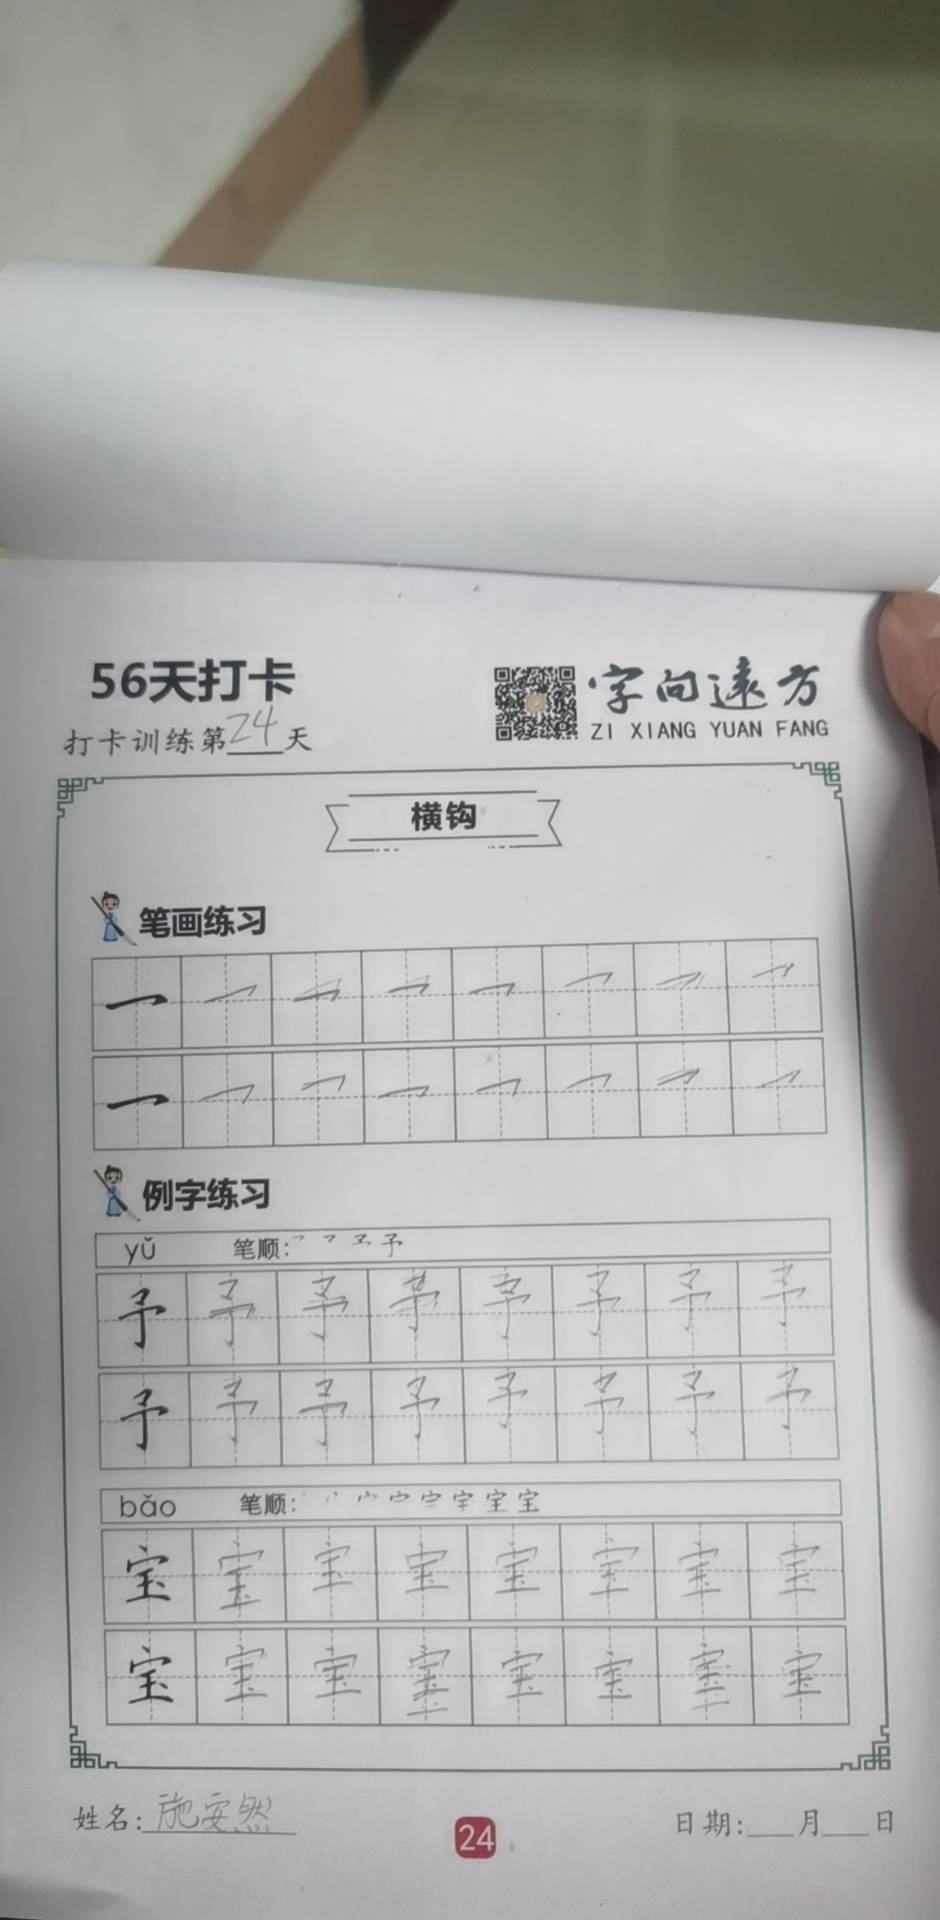 56天打卡
字向远方
ZI XIANG YUAN FANG
打卡训练第24天
横钩
笔画练习
㇖ ㇖ ㇖ ㇖ ㇖ ㇖ ㇖ ㇖
㇖ ㇖ ㇖ ㇖ ㇖ ㇖ ㇖ ㇖
例字练习
yǔ 笔顺:
予 予 予 予 予 予 予 予
予 予 予 予 予 予 予 予
bǎo 笔顺:
宝 宝 宝 宝 宝 宝 宝 宝
宝 宝 宝 宝 宝 宝 宝 宝
姓名:施安然
24
日期:___月___日